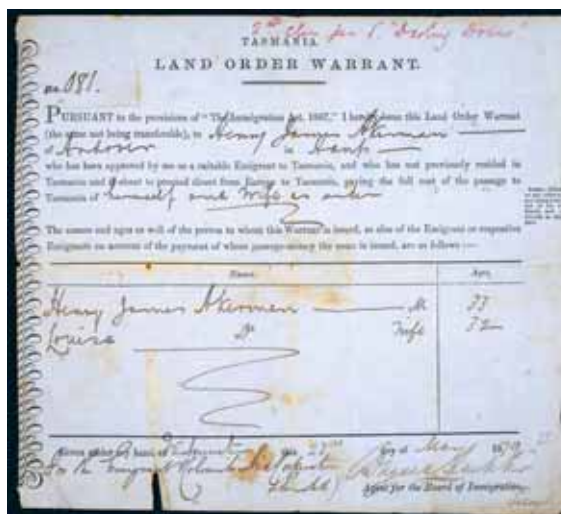 2nd Class per S
TASMANIA.
LAND ORDER WARRANT.
No 081.
PURSUANT to the provisions of "The Immigration Act, 1867," I hereby issue this Land Order Warrant
(the same not being transferable), to Henry James Akerman
of Andover in Hants
who has been approved by me as a suitable Emigrant to Tasmania, and who has not previously resided in
Tasmania and is about to proceed direct from Europe to Tasmania, paying the full cost of the passage to
Tasmania of himself and Wife as under
The names and ages as well of the person to whom this Warrant is issued, as also of the Emigrant or respective
Emigrants on account of the payment of whose passage-money the same is issued, are as follows:—
Name. Age.
Henry James Akerman M 33
Louisa Do Wife 32
Given under my hand, at this 22nd day of May 1879
For the Emigrant
Agent for the Board of Immigration.